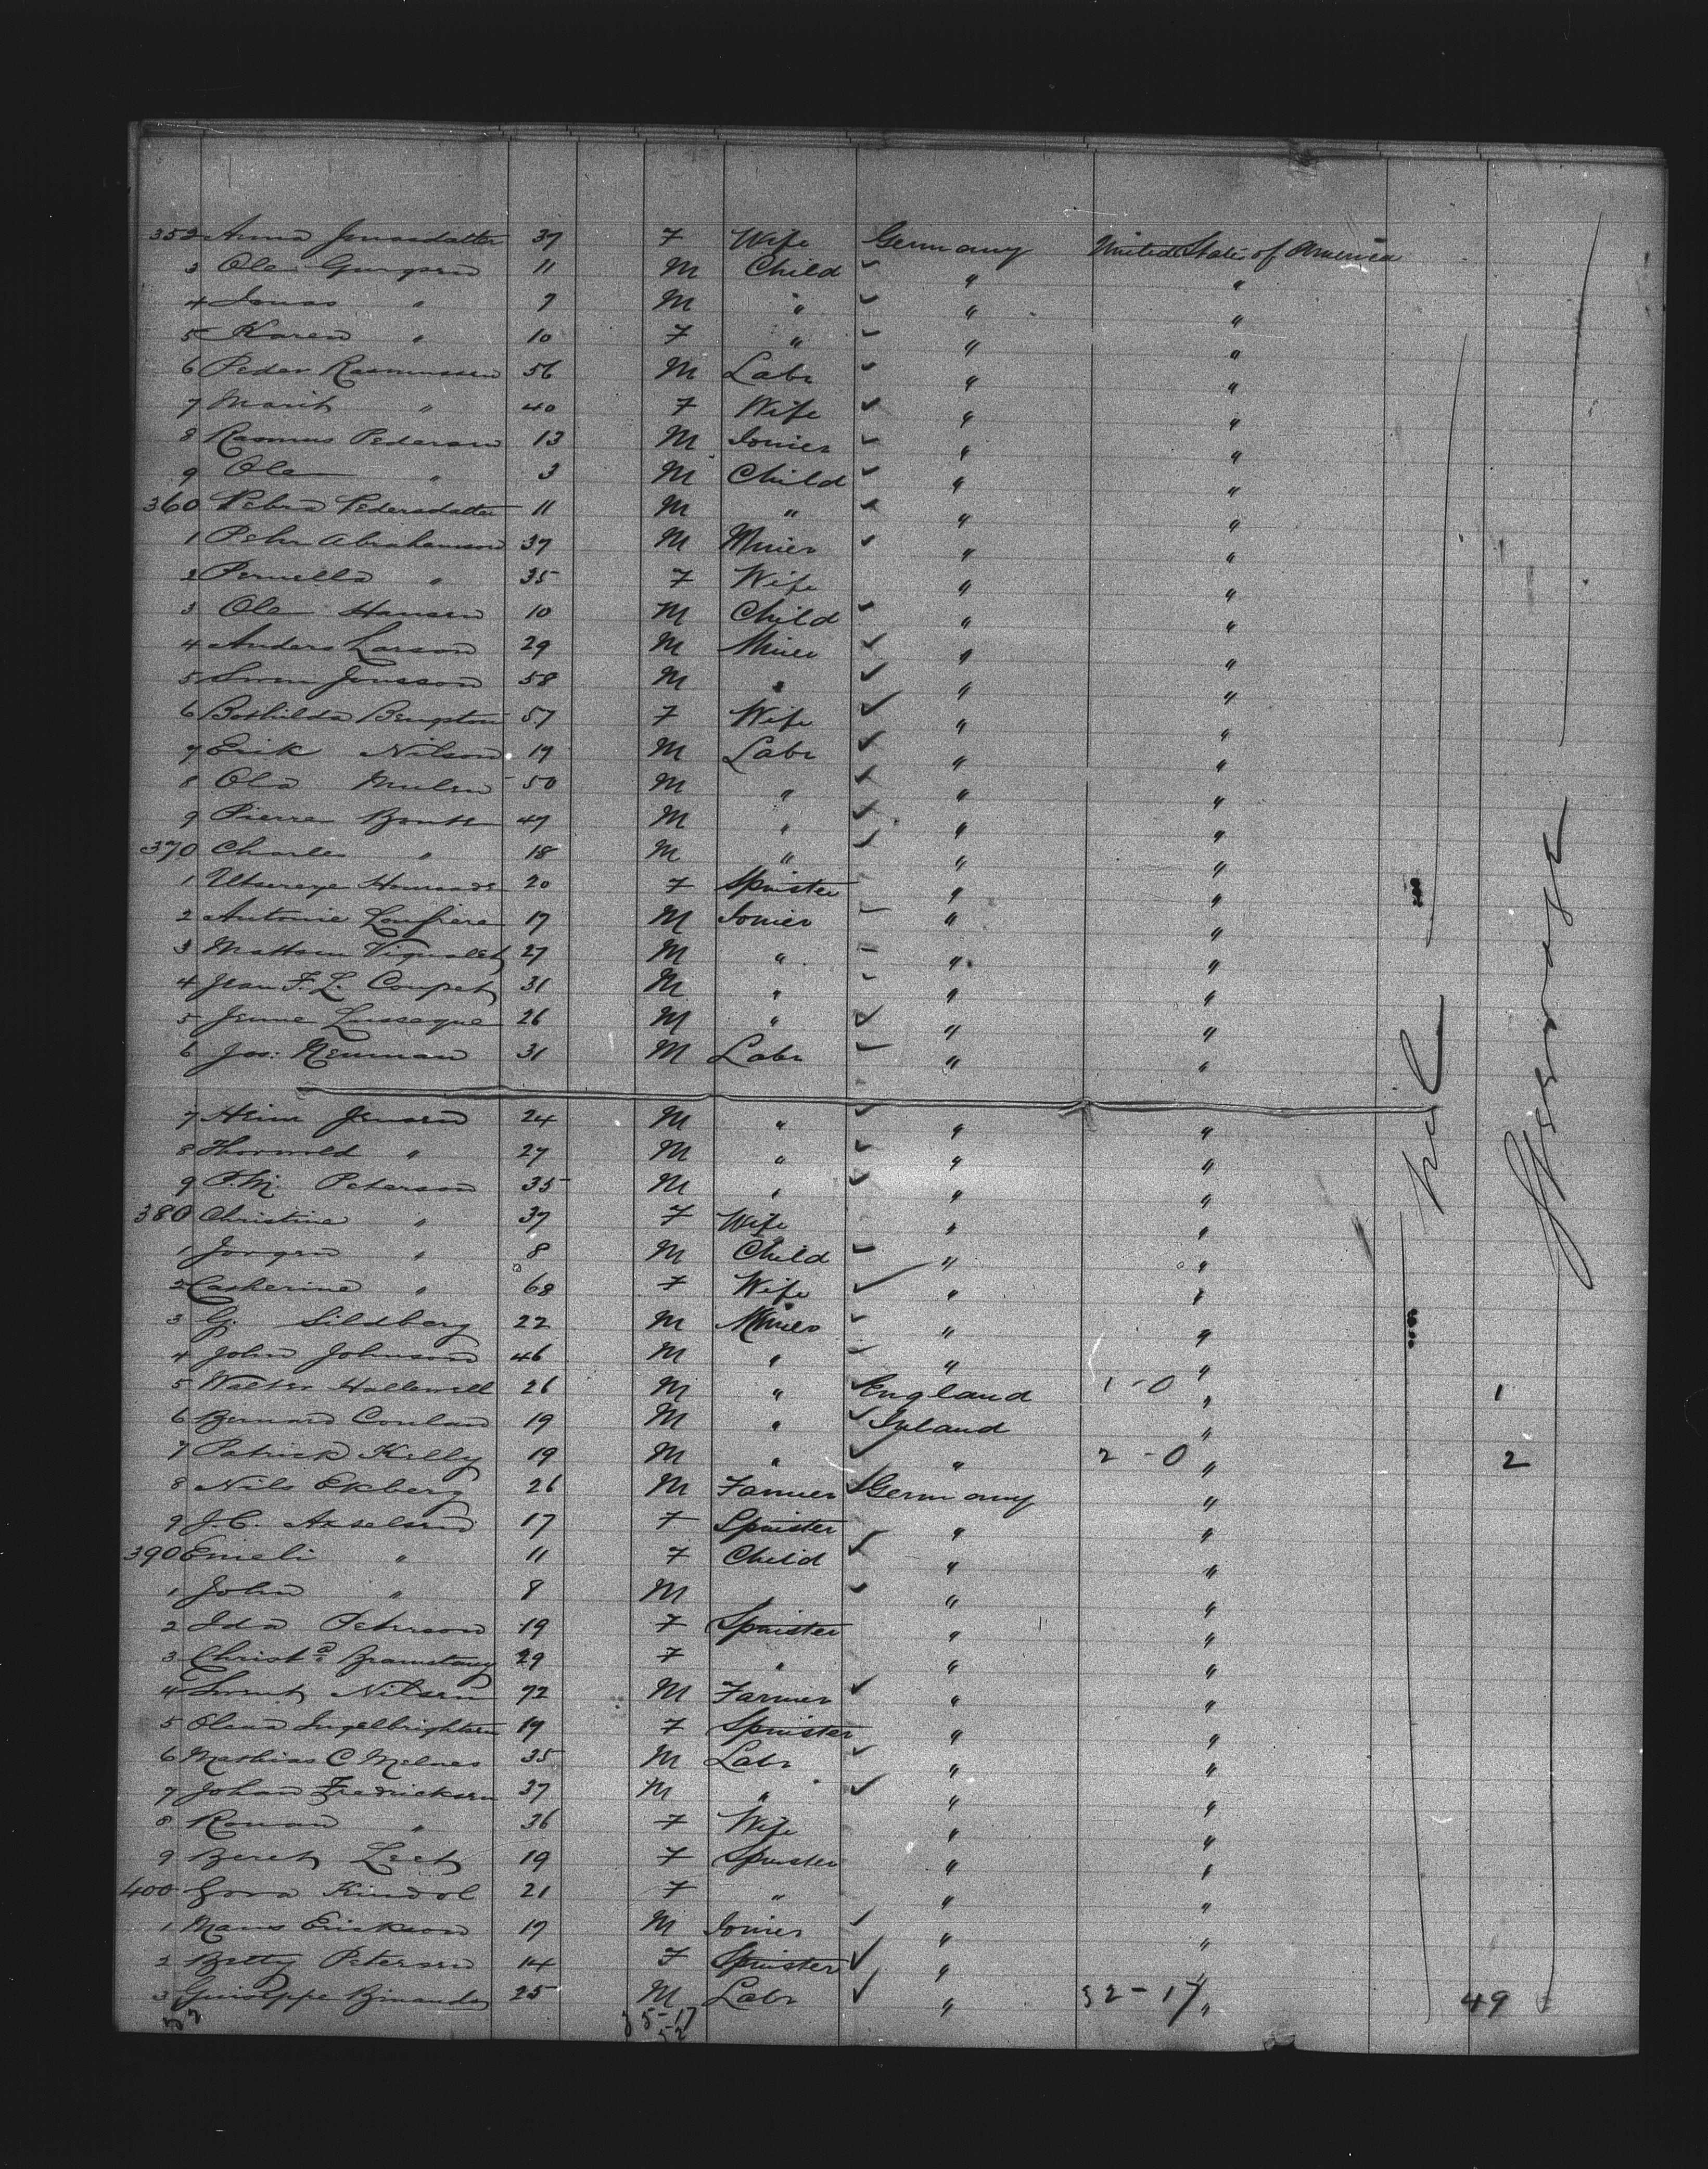 352 Anna Jonasdatter 37 F Wife Germany United State of America
3 Ole 11 M Child " "
4 Jonas " 7 M " " "
5 Karen " 10 F " " "
6 Peder Rasmussen 56 M Labr " "
7 Marit " 40 F Wife " "
8 Rasmus Pedersen 13 M Joiner " "
9 Ole " 3 M Child " "
360 Petra Pedersdatter 11 M " " "
1 Peter Abrahamson 37 M Miner " "
2 Pernella " 35 F Wife " "
3 Ole Hansen 10 M Child " "
4 Anders Larson 29 M Miner " "
5 Swen Jonsson 58 M " " "
6 Bothilda Bengston 57 F Wife " "
7 Erik Nilson 19 M Labr " "
8 Ola 50 M " " "
9 Pierre 47 M " " "
370 Charles " 18 M " " "
1 20 F Spinster " "
2 Antonie 17 M Joiner " "
3 27 M " " "
4 Jean F. L. Coupet 31 M " " "
5 26 M " " "
6 Jos: Neuman 31 M Labr " "
7 Jensen 24 M " " "
8 Thorvald " 27 M " " "
9 P. M. Peterson 35 M " " "
380 Christine " 37 F Wife " "
1 Jorgen " 8 M Child " "
2 Catherine " 68 F Wife " "
3 G. Sildberg 22 M Miner " "
4 John Johnson 46 M " " "
5 Walter Hallewell 26 M " England 1-0 " 1
6 Bernard Conlan 19 M " Ireland "
7 Patrick Kelly 19 M " " 2-0 " 2
8 Nils Ekberg 26 M Farmer Germany "
9 J. C. Axelsen 17 F Spinster " "
390 Emeli " 11 F Child " "
1 John " 8 M " "
2 Ida Peterson 19 F Spinster " "
3 Christa 29 F " " "
4 Nilsen 72 M Farmer " "
5 Olena Ingelbrightsen 19 F Spinster " "
6 Mathias C Melnes 35 M Labr " "
7 Johan Fredricksen 37 M " " "
8 " 36 F Wife " "
9 Beret 19 F Spinster " "
400 21 F " " "
1 Mans Erickson 17 M Joiner " "
2 Betty Peterson 14 F Spinster " "
3 Guiseppe 25 M Labr " 32-17 " 49
35-17
52
nil
Steerage